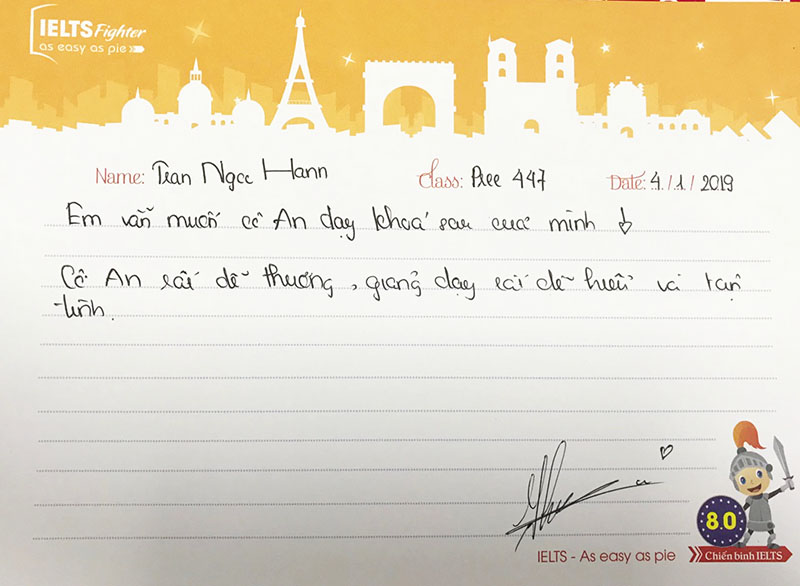 IELTS Fighter
as easy as pie
Name: Trần Ngọc Hann Class: Pree 447 Date: 4/1/2019
Em vẫn muốn cô An dạy khoá sau của mình
Cô An rất dễ thương, giảng dạy rất dễ hiểu và tận
tình.
8.0
IELTS - As easy as pie Chiến binh IELTS